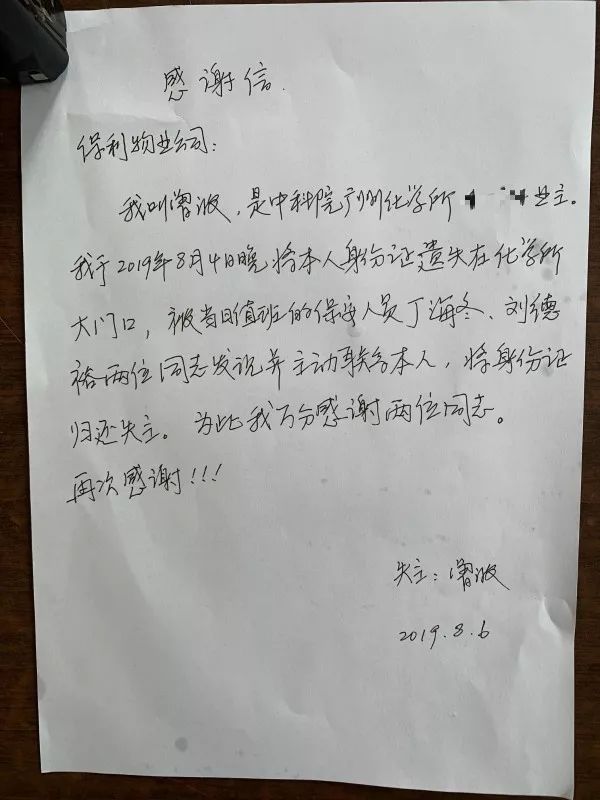 感谢信.
保利物业公司:
我叫曾波，是中科院广州化学所 业主.
我于2019年8月4日晚将本人身份证遗失在化学所
大门口，被当日值班的保安人员丁海冬、刘德
裕两位同志发现并主动联络本人，将身份证
归还失主。为此我万分感谢两位同志。
再次感谢!!!
失主：曾波
2019.8.6